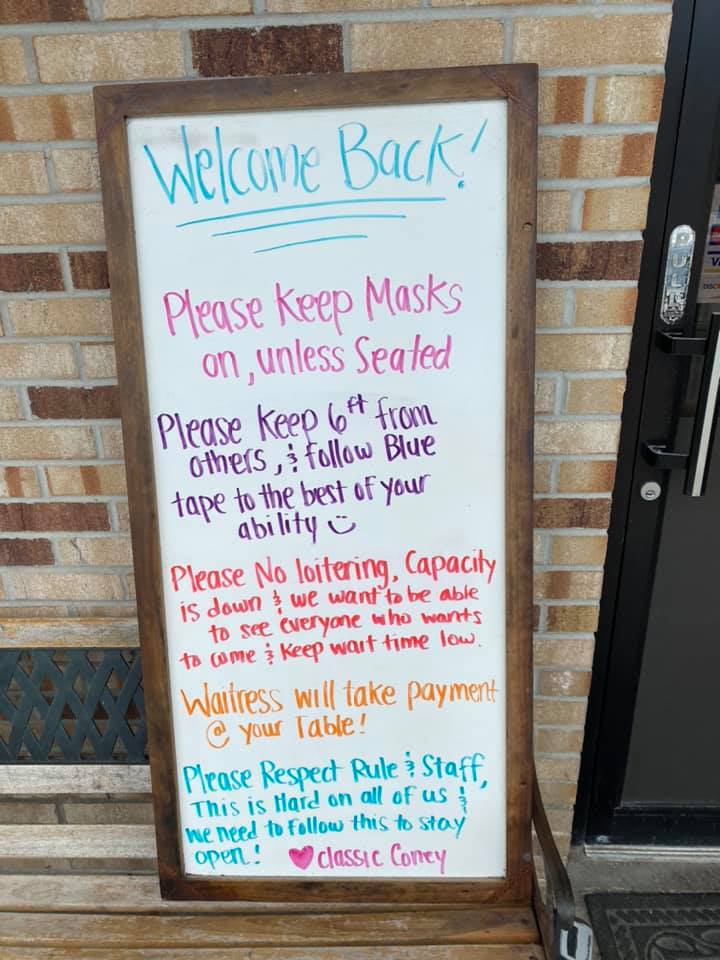 Welcome Back!
Please Keep Masks
on, unless Seated
Please Keep 6ft from
others, & follow Blue
tape to the best of your
ability
Please No loitering, Capacity
is down & we want to be able
to see everyone who wants
to come & Keep wait time low.
Waitress will take payment
@ your Table!
Please Respect Rule & Staff,
This is Hard on all of us &
we need to Follow this to stay
open! ♥ Classic Coney
PULL